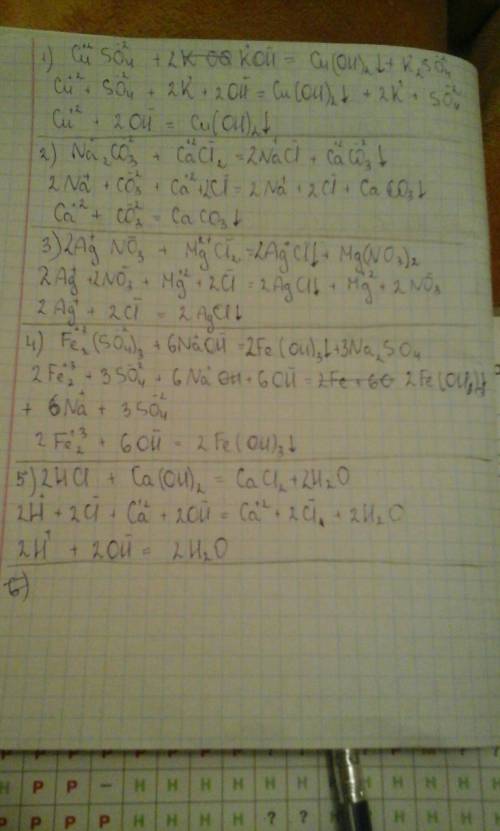 1) Cu⁺²SO₄⁻² + 2K⁺OH⁻ = Cu(OH)₂↓ + K₂SO₄
Cu⁺² + SO₄⁻² + 2K⁺ + 2OH⁻ = Cu(OH)₂↓ + 2K⁺ + SO₄⁻²
Cu⁺² + 2OH⁻ = Cu(OH)₂↓
2) Na₂⁺CO₃⁻² + Ca⁺²Cl₂⁻ = 2Na⁺Cl⁻ + Ca⁺²CO₃⁻²↓
2Na⁺ + CO₃⁻² + Ca⁺² + 2Cl⁻ = 2Na⁺ + 2Cl⁻ + CaCO₃↓
Ca⁺² + CO₃⁻² = CaCO₃↓
3) 2Ag⁺NO₃⁻ + Mg²⁺Cl₂⁻ = 2Ag⁺Cl⁻↓ + Mg(NO₃)₂
2Ag⁺ + 2NO₃⁻ + Mg⁺² + 2Cl⁻ = 2AgCl↓ + Mg⁺² + 2NO₃⁻
2Ag⁺ + 2Cl⁻ = 2AgCl↓
4) Fe₂⁺³(SO₄⁻²)₃ + 6NaOH = 2Fe(OH)₃↓ + 3Na₂SO₄
2Fe₂⁺³ + 3SO₄⁻² + 6Na⁺ + 6OH⁻ = 2Fe(OH)₃↓
+ 6Na⁺ + 3SO₄⁻²
2Fe₂⁺³ + 6OH⁻ = 2Fe(OH)₃↓
5) 2HCl + Ca(OH)₂ = CaCl₂ + 2H₂O
2H⁺ + 2Cl⁻ + Ca⁺² + 2OH⁻ = Ca⁺² + 2Cl⁻ + 2H₂O
2H⁺ + 2OH⁻ = 2H₂O
6)
H P P – H H H H H H
P P P P H H H H ? ? H H H H